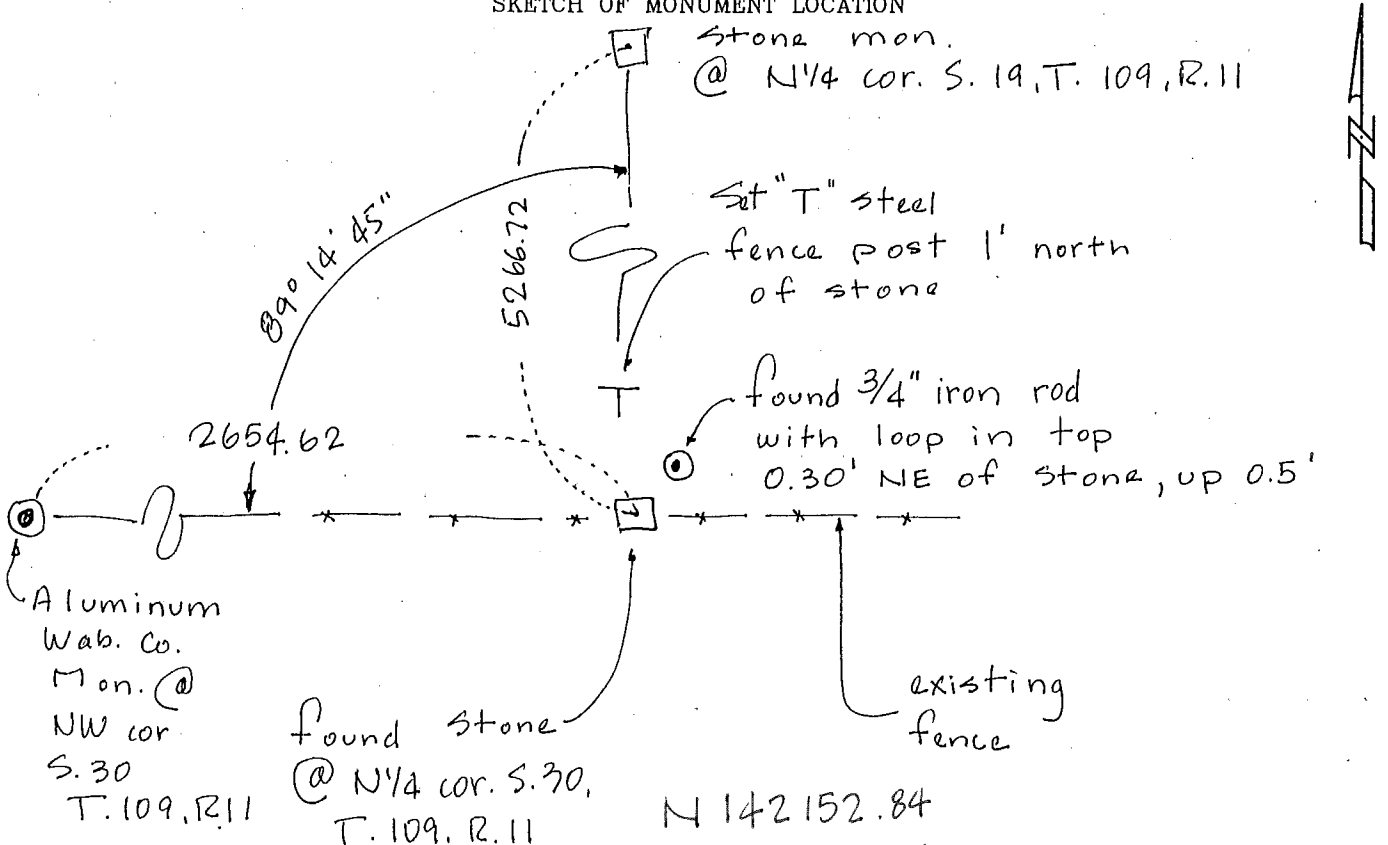 SKETCH OF MONUMENT LOCATION
Stone mon.
@ N1/4 cor. S. 19, T. 109, R.11
N
Set "T" steel
fence post 1' north
of stone
89° 14' 45"
5266.72
T
found 3/4" iron rod
with loop in top
0.30' NE of stone, up 0.5'
2654.62
Aluminum
Wab. Co.
Mon. @
NW cor
S. 30
T. 109, R11
found stone
@ N1/4 cor. S. 30,
T. 109, R. 11
existing
fence
N 142152.84